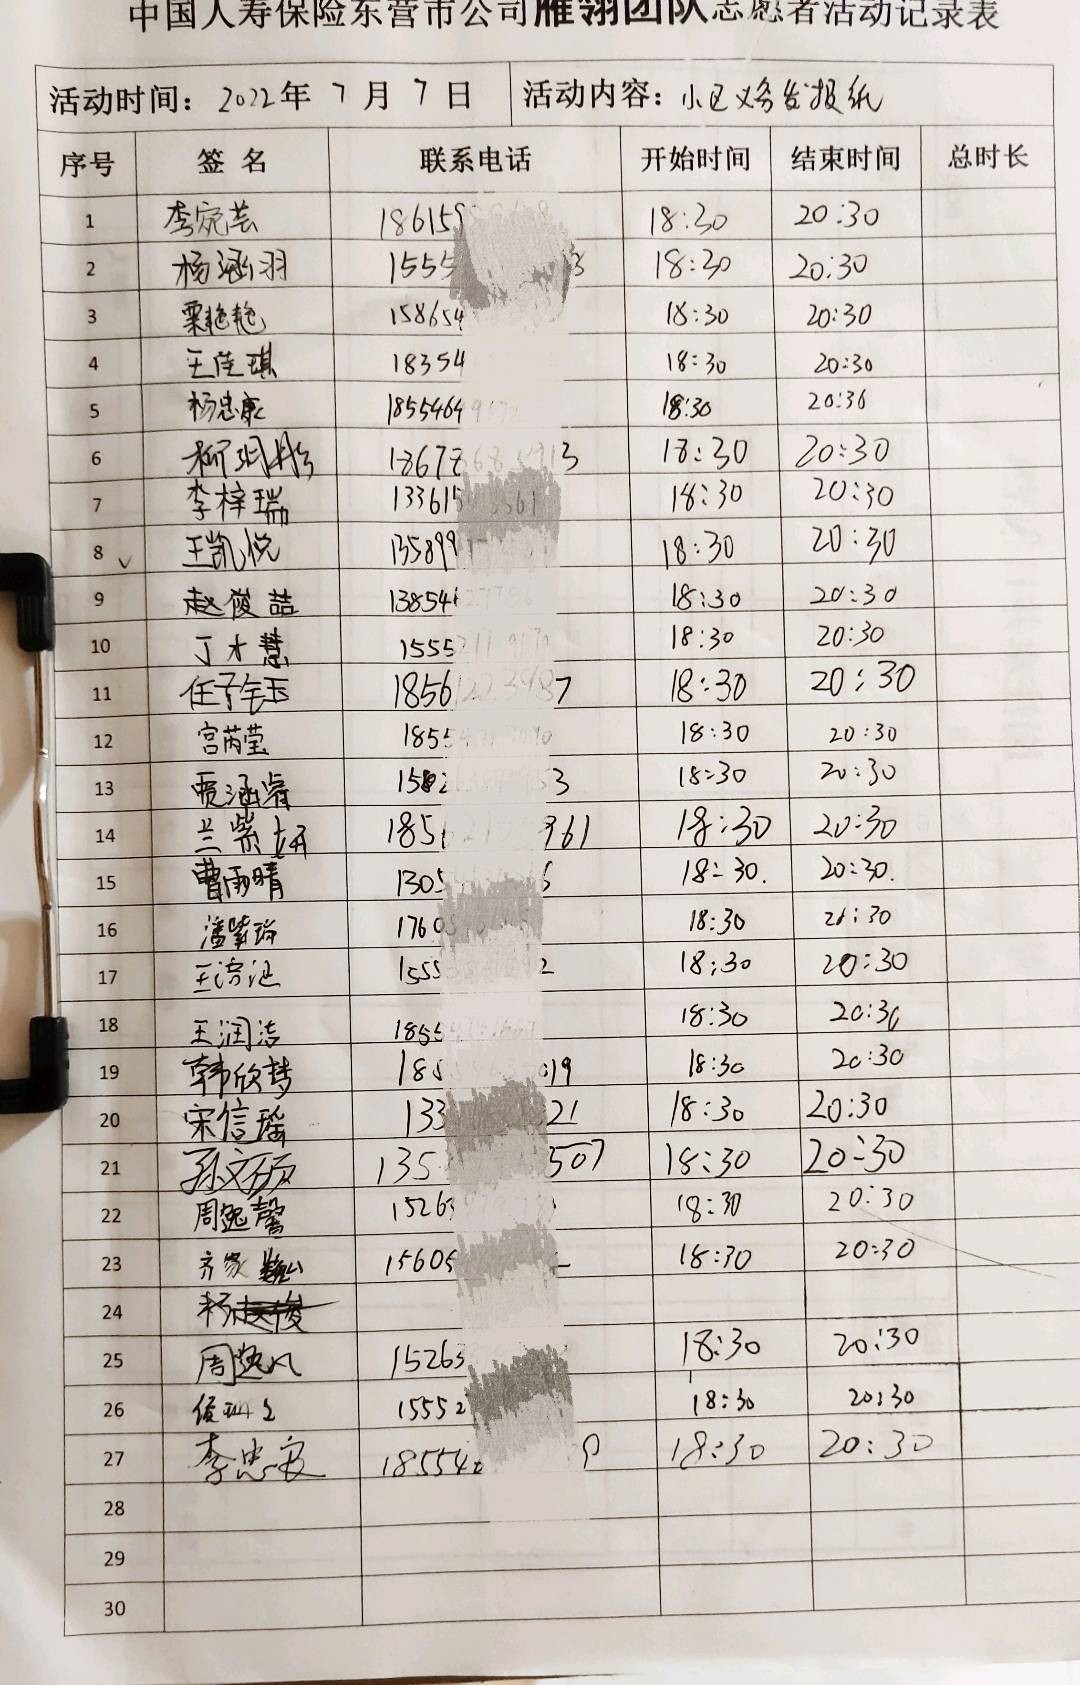 中国人寿保险东营市公司雁翎团队志愿者活动记录表
活动时间：2022年 7 月 7 日 活动内容：小区义务发报纸
序号 签 名 联系电话 开始时间 结束时间 总时长
1 李宛芸 186159 18:30 20:30
2 杨涵羽 1555 18:30 20:30
3 栗艳艳 158654 18:30 20:30
4 王佳琪 18354 18:30 20:30
5 杨忠康 1855464 18:30 20:30
6 18678 13 18:30 20:30
7 李梓瑞 133615 18:30 20:30
8 王凯悦 135899 18:30 20:30
9 赵俊喆 13854 18:30 20:30
10 丁才慧 1555 18:30 20:30
11 任子钰 1856 7 18:30 20:30
12 宫芮莹 1855 18:30 20:30
13 贾涵睿 1582 3 18:30 20:30
14 兰紫妍 185 961 18:30 20:30
15 曹雨晴 1305 6 18:30. 20:30.
16 潘紫 1760 18:30 20:30
17 王 1555 2 18:30 20:30
18 王润洁 1855 18:30 20:30
19 韩欣梦 185 19 18:30 20:30
20 宋信瑶 133 21 18:30 20:30
21 孙文硕 135 507 18:30 20:30
22 周逸馨 15263 18:30 20:30
23 齐家 15605 18:30 20:30
24 杨 俊
25 周逸凡 15263 18:30 20:30
26 15552 18:30 20:30
27 李忠安 18554 18:30 20:30
28
29
30